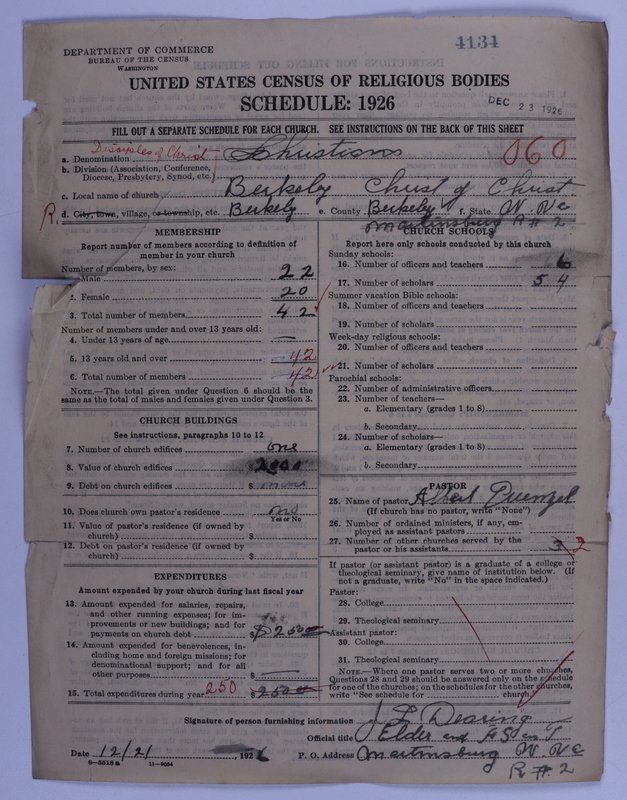 4134
DEPARTMENT OF COMMERCE
BUREAU OF THE CENSUS
WASHINGTON
UNITED STATES CENSUS OF RELIGIOUS BODIES
SCHEDULE: 1926
DEC 23 1926
FILL OUT A SEPARATE SCHEDULE FOR EACH CHURCH. SEE INSTRUCTIONS ON THE BACK OF THIS SHEET
Disciples of Christ
a. Denomination Christians 060
b. Division (Association, Conference, Diocese, Presbytery, Synod, etc.)
c. Local name of church Berkeley Christ of Christ
R. d. City, town, village, or township, etc. Berkeley e. County Berkeley f. State W. Va
Martinsburg R # 2
MEMBERSHIP
Report number of members according to definition of
member in your church
Number of members, by sex:
Male 22
2. Female 20
3. Total number of members 42
Number of members under and over 13 years old:
4. Under 13 years of age —
5. 13 years old and over 42
6. Total number of members 42
NOTE.—The total given under Question 6 should be the
same as the total of males and females given under Question 3.
CHURCH BUILDINGS
See instructions, paragraphs 10 to 12
7. Number of church edifices one
8. Value of church edifices 2000
9. Debt on church edifices $ none
10. Does church own pastor's residence no
Yes or No
11. Value of pastor's residence (if owned by
church) $
12. Debt on pastor's residence (if owned by
church) $
EXPENDITURES
Amount expended by your church during last fiscal year
13. Amount expended for salaries, repairs,
and other running expenses; for im-
provements or new buildings; and for
payments on church debt $ 250
14. Amount expended for benevolences, in-
cluding home and foreign missions; for
denominational support; and for all
other purposes $ —
15. Total expenditures during year 250 $ 250
CHURCH SCHOOLS
Report here only schools conducted by this church
Sunday schools:
16. Number of officers and teachers 6
17. Number of scholars 54
Summer vacation Bible schools:
18. Number of officers and teachers
19. Number of scholars
Week-day religious schools:
20. Number of officers and teachers
21. Number of scholars
Parochial schools:
22. Number of administrative officers
23. Number of teachers—
a. Elementary (grades 1 to 8)
b. Secondary
24. Number of scholars—
a. Elementary (grades 1 to 8)
b. Secondary
PASTOR
25. Name of pastor Albert
(If church has no pastor, write "None")
26. Number of ordained ministers, if any, em-
ployed as assistant pastors
27. Number of other churches served by the
pastor or his assistants 3 2
If pastor (or assistant pastor) is a graduate of a college or
theological seminary, give name of institution below. (If
not a graduate, write "No" in the space indicated.)
Pastor:
28. College
29. Theological seminary
Assistant pastor:
30. College
31. Theological seminary
NOTE.—Where one pastor serves two or more churches,
Questions 28 and 29 should be answered only on the schedule
for one of the churches; on the schedules for the other churches,
write "See schedule for church"
Signature of person furnishing information J L Dearing
Official title Elder and
Date 12/21, 1926 P. O. Address Martinsburg W. Va
6-5518 a 11-9034 R # 2